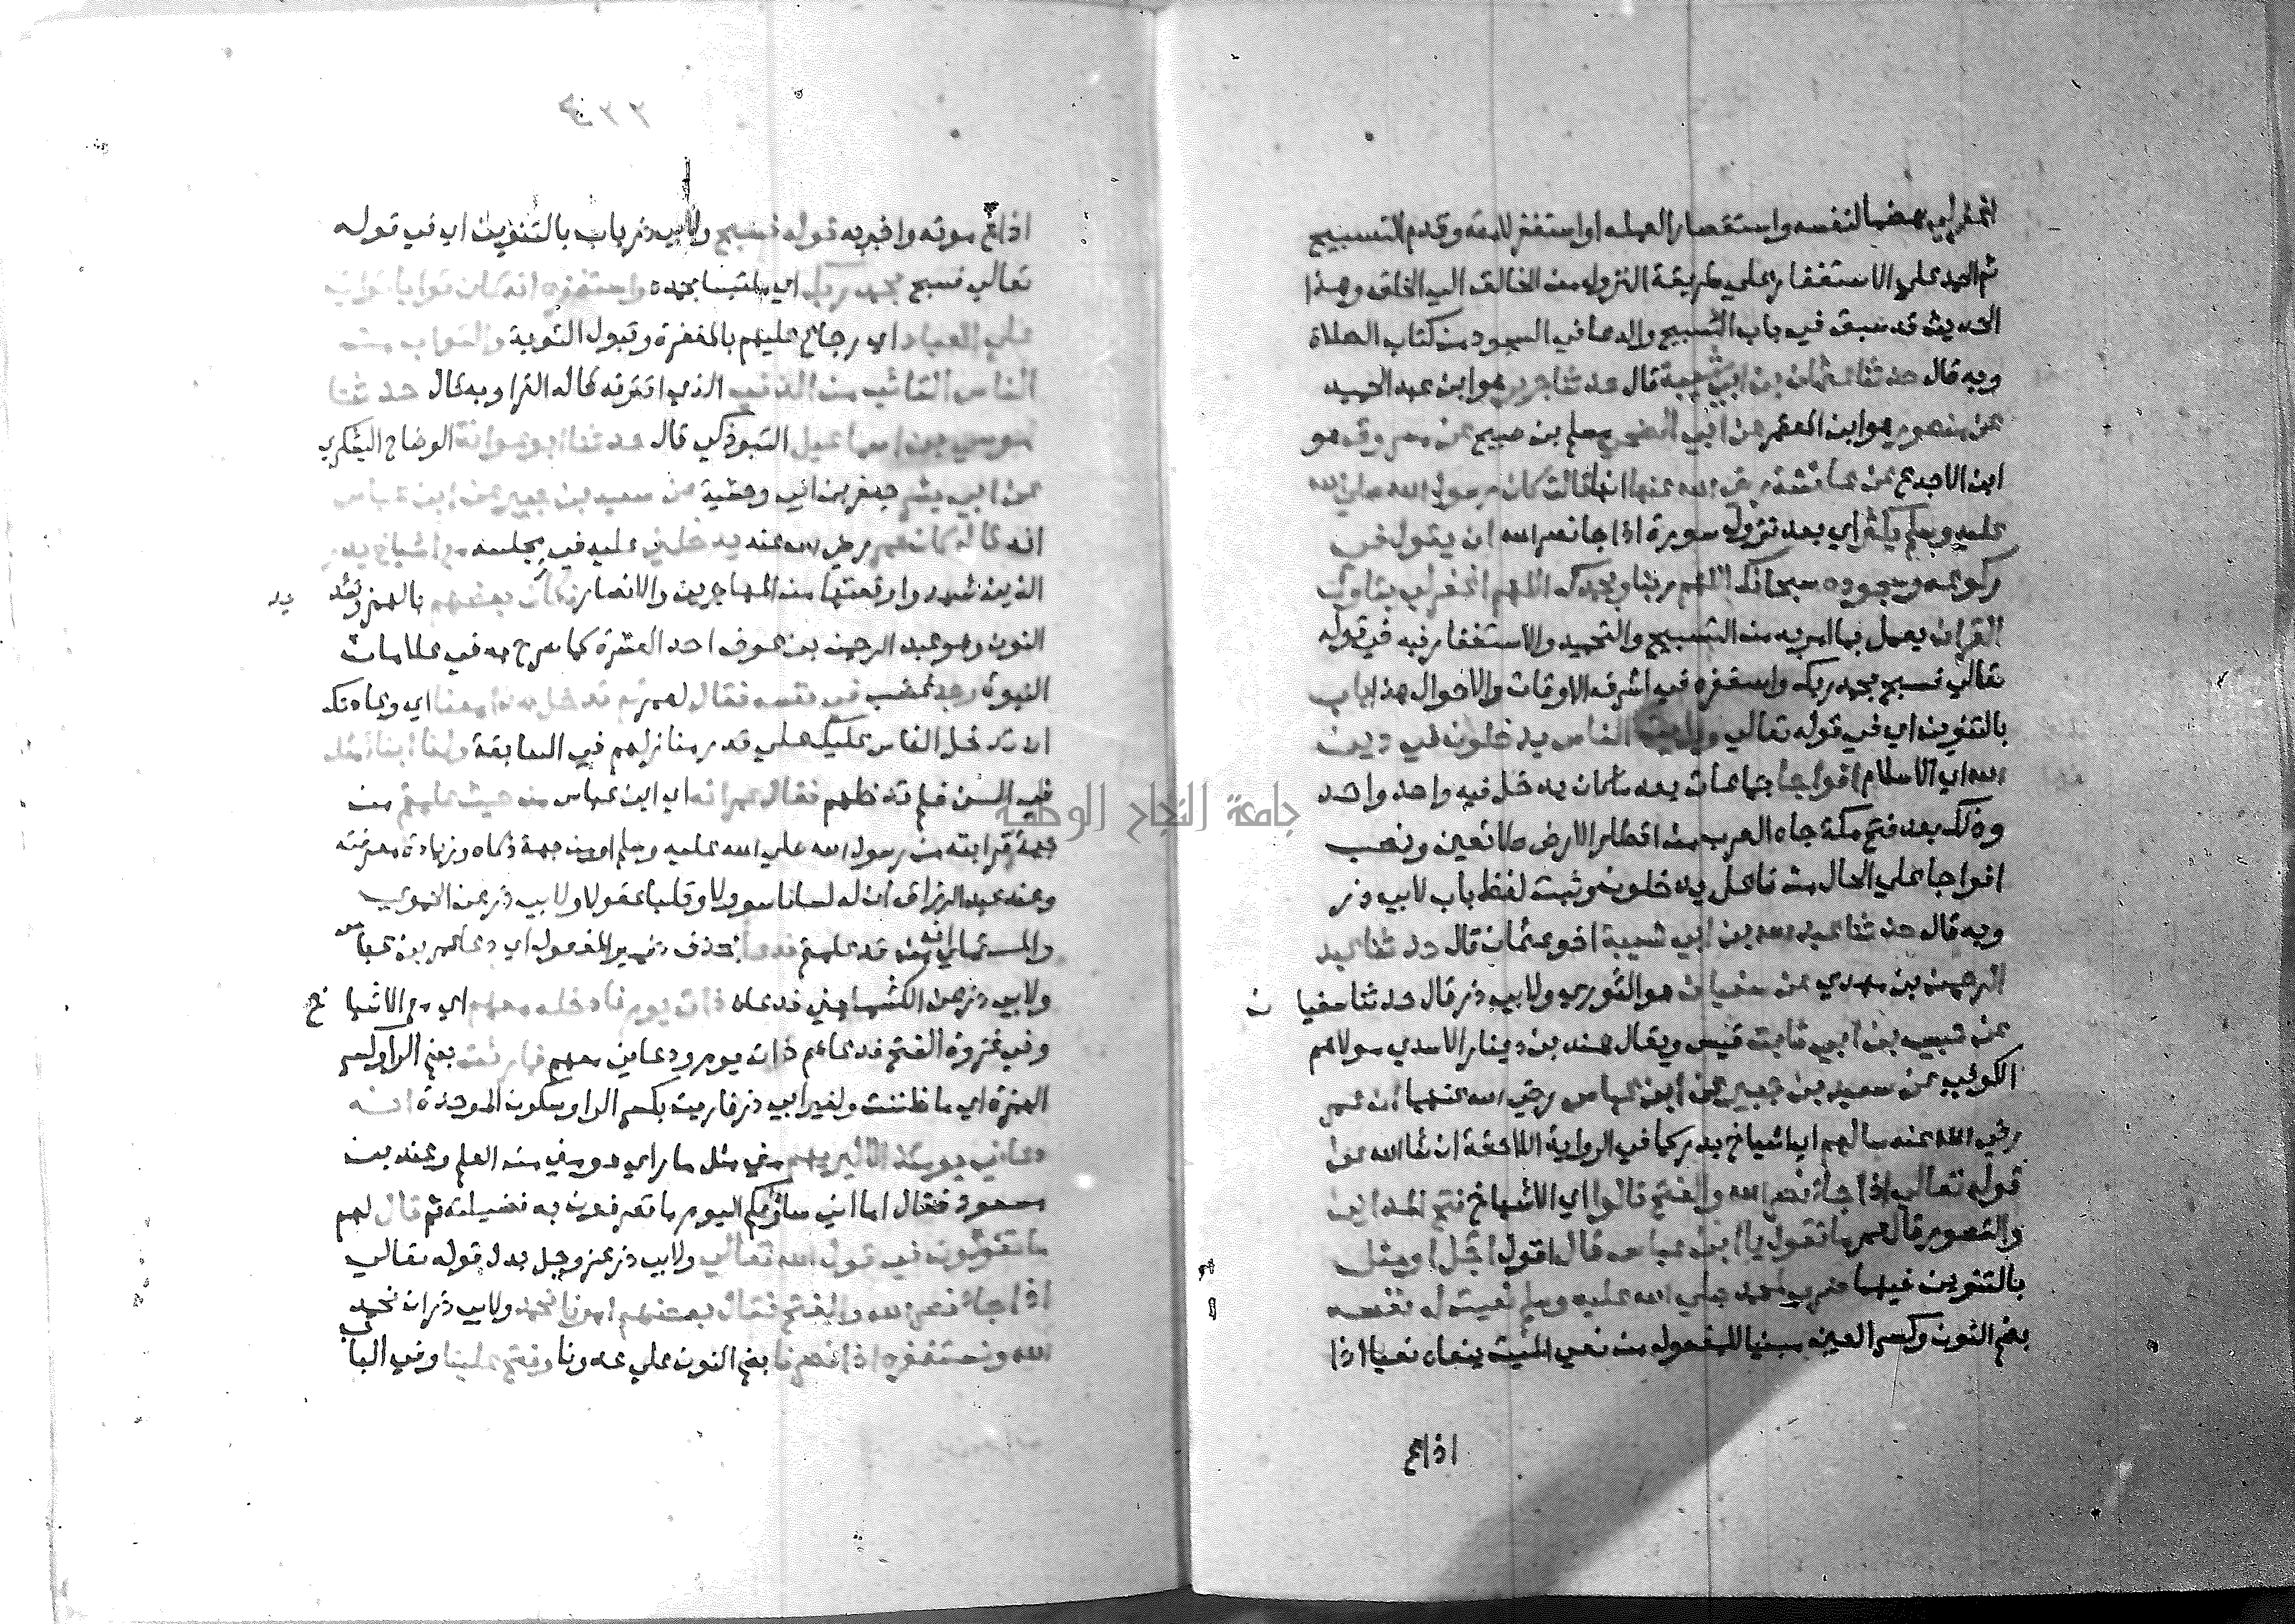 اغفر لي هضما لنفسه واستقصارا لعمله او استغفر لامته وقدم التسبيح
ثم الحمد علي الاستغفار علي طريقة النزول من الخالق الي الخلق وهذا
الحديث قد سبق في باب التسبيح والدعا في السجود من كتاب الصلاة
وبه قال حدثنا عثمان بن ابي شيبة قال حدثنا جرير هو ابن عبد الحميد
عن منصور هو ابن المعتمر عن ابي الضحي مسلم بن صبيح عن مسروق هو
ابن الاجدع عن عائشة رضي الله عنها انها قالت كان رسول الله صلي الله
عليه وسلم يكثر اي بعد نزول سورة اذا جا نصر الله ان يقول في
ركوعه وسجوده سبحانك اللهم ربنا وبحمدك اللهم اغفر لي يتاول
القران يعمل بما امر به من التسبيح والتحميد والاستغفار فيه في قوله
تعالي فسبح بحمد ربك واستغفره في اشرف الاوقات والاحوال هذا باب
بالتنوين اي في قوله تعالي ورايت الناس يدخلون في دين
الله اي الاسلام افواجا جماعات بعد ما كان يدخل فيه واحد واحد
وذلك بعد فتح مكة جاه العرب من اقطار الارض طائعين ونصب
افواجا علي الحال من فاعل يدخلون وثبت لفظ باب لابي ذر
وبه قال حدثنا عبد الله بن ابي شيبة اخو عثمان قال حدثنا عبد
الرحمن بن مهدي عن سفيان هو الثوري ولابي ذر قال حدثنا سفيان
عن حبيب بن ابي ثابت قيس ويقال هند بن دينار الاسدي مولاهم
الكوفي عن سعيد بن جبير عن ابن عباس رضي الله عنهما ان عمر
رضي الله عنه سالهم اي اشياخ بدر كما في الرواية اللاحقة ان شا الله عن
قوله تعالي اذا جاء نصر الله والفتح قالوا اي الاشياخ فتح المداين
والقصور قال عمر ما تقول يا ابن عباس قال اقول اجل او مثل
بالتنوين فيهما ضرب لمحمد صلي الله عليه وسلم نعيت له نفسه
بضم النون وكسر العين مبنيا للمفعول من نعي الميت ينعاه نعيا اذا
اذاع
٢٣٣
اذاع موته واخبر به قوله فسبح ولابي ذر باب بالتنوين اي في قوله
تعالي فسبح بحمد ربك اي ملتبسا بحمده واستغفره انه كان توابا تواب
علي العباد اي رجاع عليهم بالمغفرة وقبول التوبة والتواب من
الناس التائب من الذنب الذي اقترفه قاله الفرا وبه قال حدثنا
موسي بن اسماعيل التبوذكي قال حدثنا ابو عوانة الوضاح اليشكري
عن ابي بشر جعفر بن ابي وحشية عن سعيد بن جبير عن ابن عباس
انه قال كان عمر رضي الله عنه يدخلني عليه في مجلسه مع اشياخ بدر
الذين شهدوا وقعتها من المهاجرين والانصار فكان بعضهم بالهمز وتشد يد
النون وهو عبد الرحمن بن عوف احد العشرة كما صرح به في علامات
النبوة وجد غضب في نفسه فقال لعمر لم تدخل هذا معنا اي وعادتك
ان تدخل الناس عليك علي قدر منازلهم في السابقة ولنا ابنا مثله
في السن فلم تدخلهم فقال عمر انه اي ابن عباس من حيث علمتم من
جهة قرابته من رسول الله صلي الله عليه وسلم او من جهة ذكاه وزيادة معرفته
وعند عبد الرزاق ان له لسانا سوولا وقلبا عقولا ولابي ذر عن الحموي
والمستملي انه من قد علمتم فدعا بحذف ضمير المفعول اي دعا عمر بن عباس
ولابي ذر عن الكشميهني فدعاه ذات يوم فادخله معهم اي مع الاشياخ
وفي غزوة الفتح فدعاهم ذات يوم ودعاني معهم فما رئيت بضم الرا وكسر
الهمزة اي ما ظننت ولغير ابي ذر فاريت بكسر الرا وسكون الموحدة انه
دعاني يومئذ الا ليريهم مني مثل ما راي هو مني من العلم وعند بن
سعود فقال اما اني ساريكم اليوم ما تعرفون به فضيلته ثم قال لهم
ما تقولون في قول الله تعالي ولابي ذر عز وجل بدل قوله تعالي
اذا جاء نصر الله والفتح فقال بعضهم امرنا نحمد ولابي ذر ان نحمد
الله ونستغفره اذا نصرنا بضم النون علي عدونا وفتح علينا وفي الباب
جامعة النجاح الوطنية